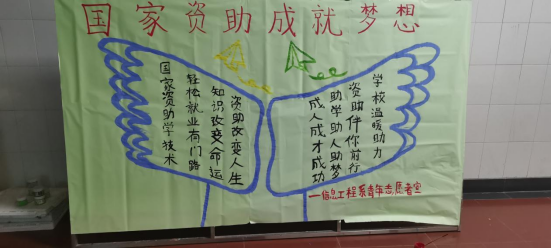 国家资助成就梦想
国家资助学技术
轻松就业有门路
知识改变命运
资助改变人生
学校温暖助力
资助伴你前行
助学助人助梦
成人成才成功
—信息工程系青年志愿者宣